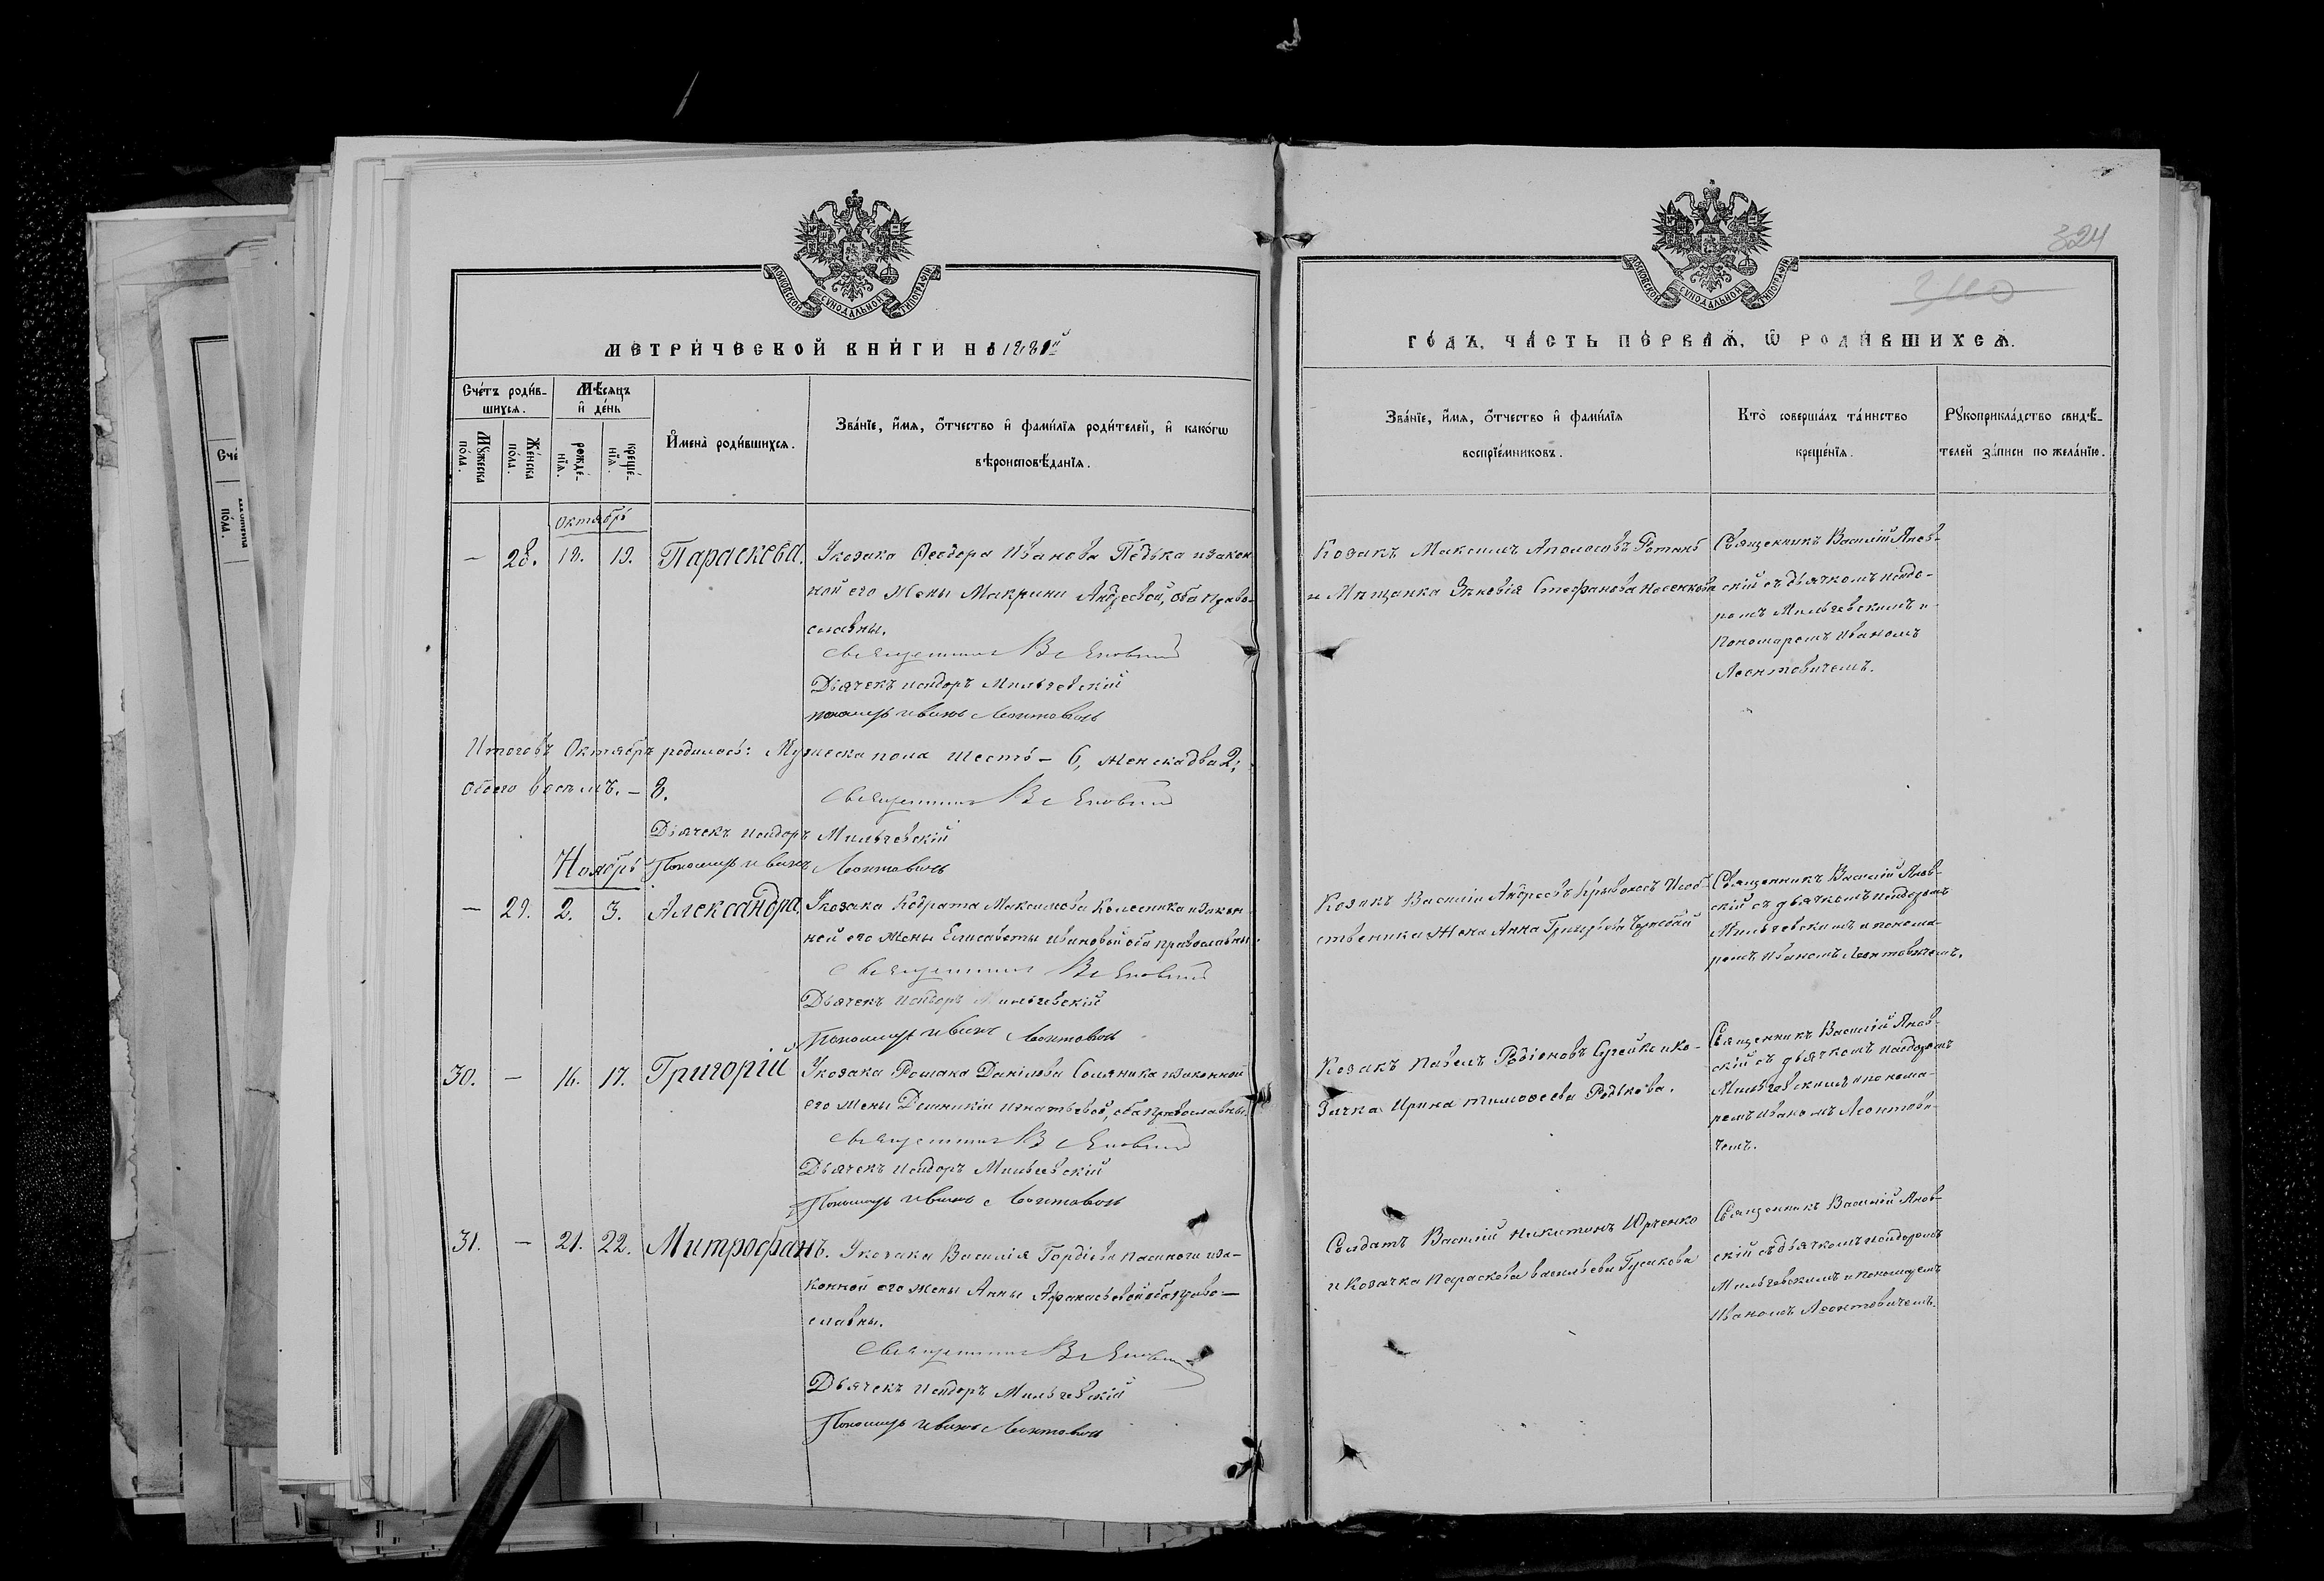 324
МОСКОВСКОЙ СУНОДАЛЬНОЙ ТИПОГРАФІИ
МОСКОВСКОЙ СУНОДАЛЬНОЙ ТИПОГРАФІИ
МЕТРИ́ЧЕСКОЙ КНИ́ГИ НА 1881й
ГО́ДЪ, ЧА́СТЬ ПЕ́РВАѦ, Ѡ҆ РОДИ́ВШИХСѦ.
Сче́тъ роди́в-
шихсѧ.
Мѣ́сѧцъ
и҆ де́нь
Мꙋ́жеска
по́ла.
Же́нска
по́ла.
рожде́-
нїѧ.
креще́-
нїѧ.
И҆мена̀ роди́вшихсѧ.
Зва́нїе, и҆́мѧ, ѻ҆́тчество и҆ фами́лїѧ роди́телей, и҆ како́гѡ
вѣроисповѣ́данїѧ.
Зва́нїе, и҆́мѧ, ѻ҆́тчество и҆ фами́лїѧ
воспрїе́мниковъ.
Кто̀ соверша́лъ та́инство
креще́нїѧ.
Рꙋкоприкла́дство свидѣ́-
телей за́писи по жела́нїю.
Октябрь
— 28. 12. 13. Параскева. У козака Ѳеодора Иванова Педька и закон
ной его жены Макрины Андреевой, оба право-
славны.
Священникъ В Яновский
Дьячекъ Исидоръ Мильчевскій
пономарь Иванъ Леонтовичь
Козакъ Максимъ Аполосовъ Ротань
и Мѣщанка Зѣновія Стефанова Носенкова
Священникъ Василій Янов-
скій съ дьячкомъ Исидо-
ромъ Мильчевскимъ и
Пономаремъ Иваномъ
Леонтовичемъ.
Итого въ Октябрѣ родилось: Мужеска пола шесть — 6, женска два 2;
обоего восемь. — 8.
Священникъ В Яновский
Дьячекъ Исидоръ Мильчевскій
Ноябрь Пономарь Иванъ Леонтовичь
— 29. 2. 3. Александра. У козака Кодрата Максимова Колесника и закон
ной его жены Елисаветы Ивановой оба православны.
Священникъ В Яновский
Дьячекъ Исидоръ Мильчевскій
Пономарь Иванъ Леонтовичь
Козакъ Василій Андреевъ Кривоносъ
ственика жена Анна Григорьева
Священникъ Василій Янов-
скій съ дьячкомъ Исидоромъ
Мильчевскимъ и понома-
ремъ Иваномъ Леонтовичемъ.
30. — 16. 17. Григорій У козака Романа Данілова Соляника и законной
его жены Домникіи Игнатьевой, оба православны.
Священникъ В Яновский
Дьячекъ Исидоръ Мильчевскій
Пономарь Иванъ Леонтовичь
Козакъ Павелъ Родіоновъ и Ко-
зачка Ирина Тимоѳеева Редькова.
Священникъ Василій Янов-
скій съ дьячкомъ Исидоромъ
Мильчевскимъ и понома-
ремъ Иваномъ Леонтови-
чемъ.
31. — 21. 22. Митрофанъ. У козака Василія Гордіева и за-
конной его жены Анны Афанасьевой оба право-
славны.
Священникъ В Яновский
Дьячекъ Исидоръ Мильчевскій
Пономарь Иванъ Леонтовичь
Солдатъ Василій Никитинъ Юрченко
и Козачка Параскева Васильева Гусакова
Священникъ Василій Янов-
скій съ дьячкомъ Исидоромъ
Мильчевскимъ и пономаремъ
Иваномъ Леонтовичемъ.